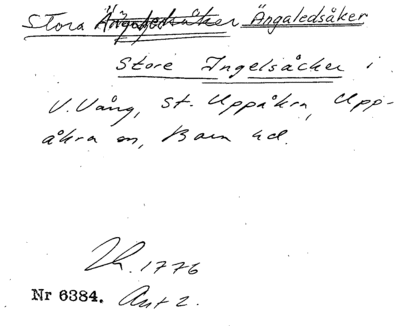 Stora Ängaledsåker
Store Ingelsåcker i
V. Vång, St. Uppåkra, Upp-
åkra sn, Bara hd.
Lh. 1776
Nr 6384. Ant 2.